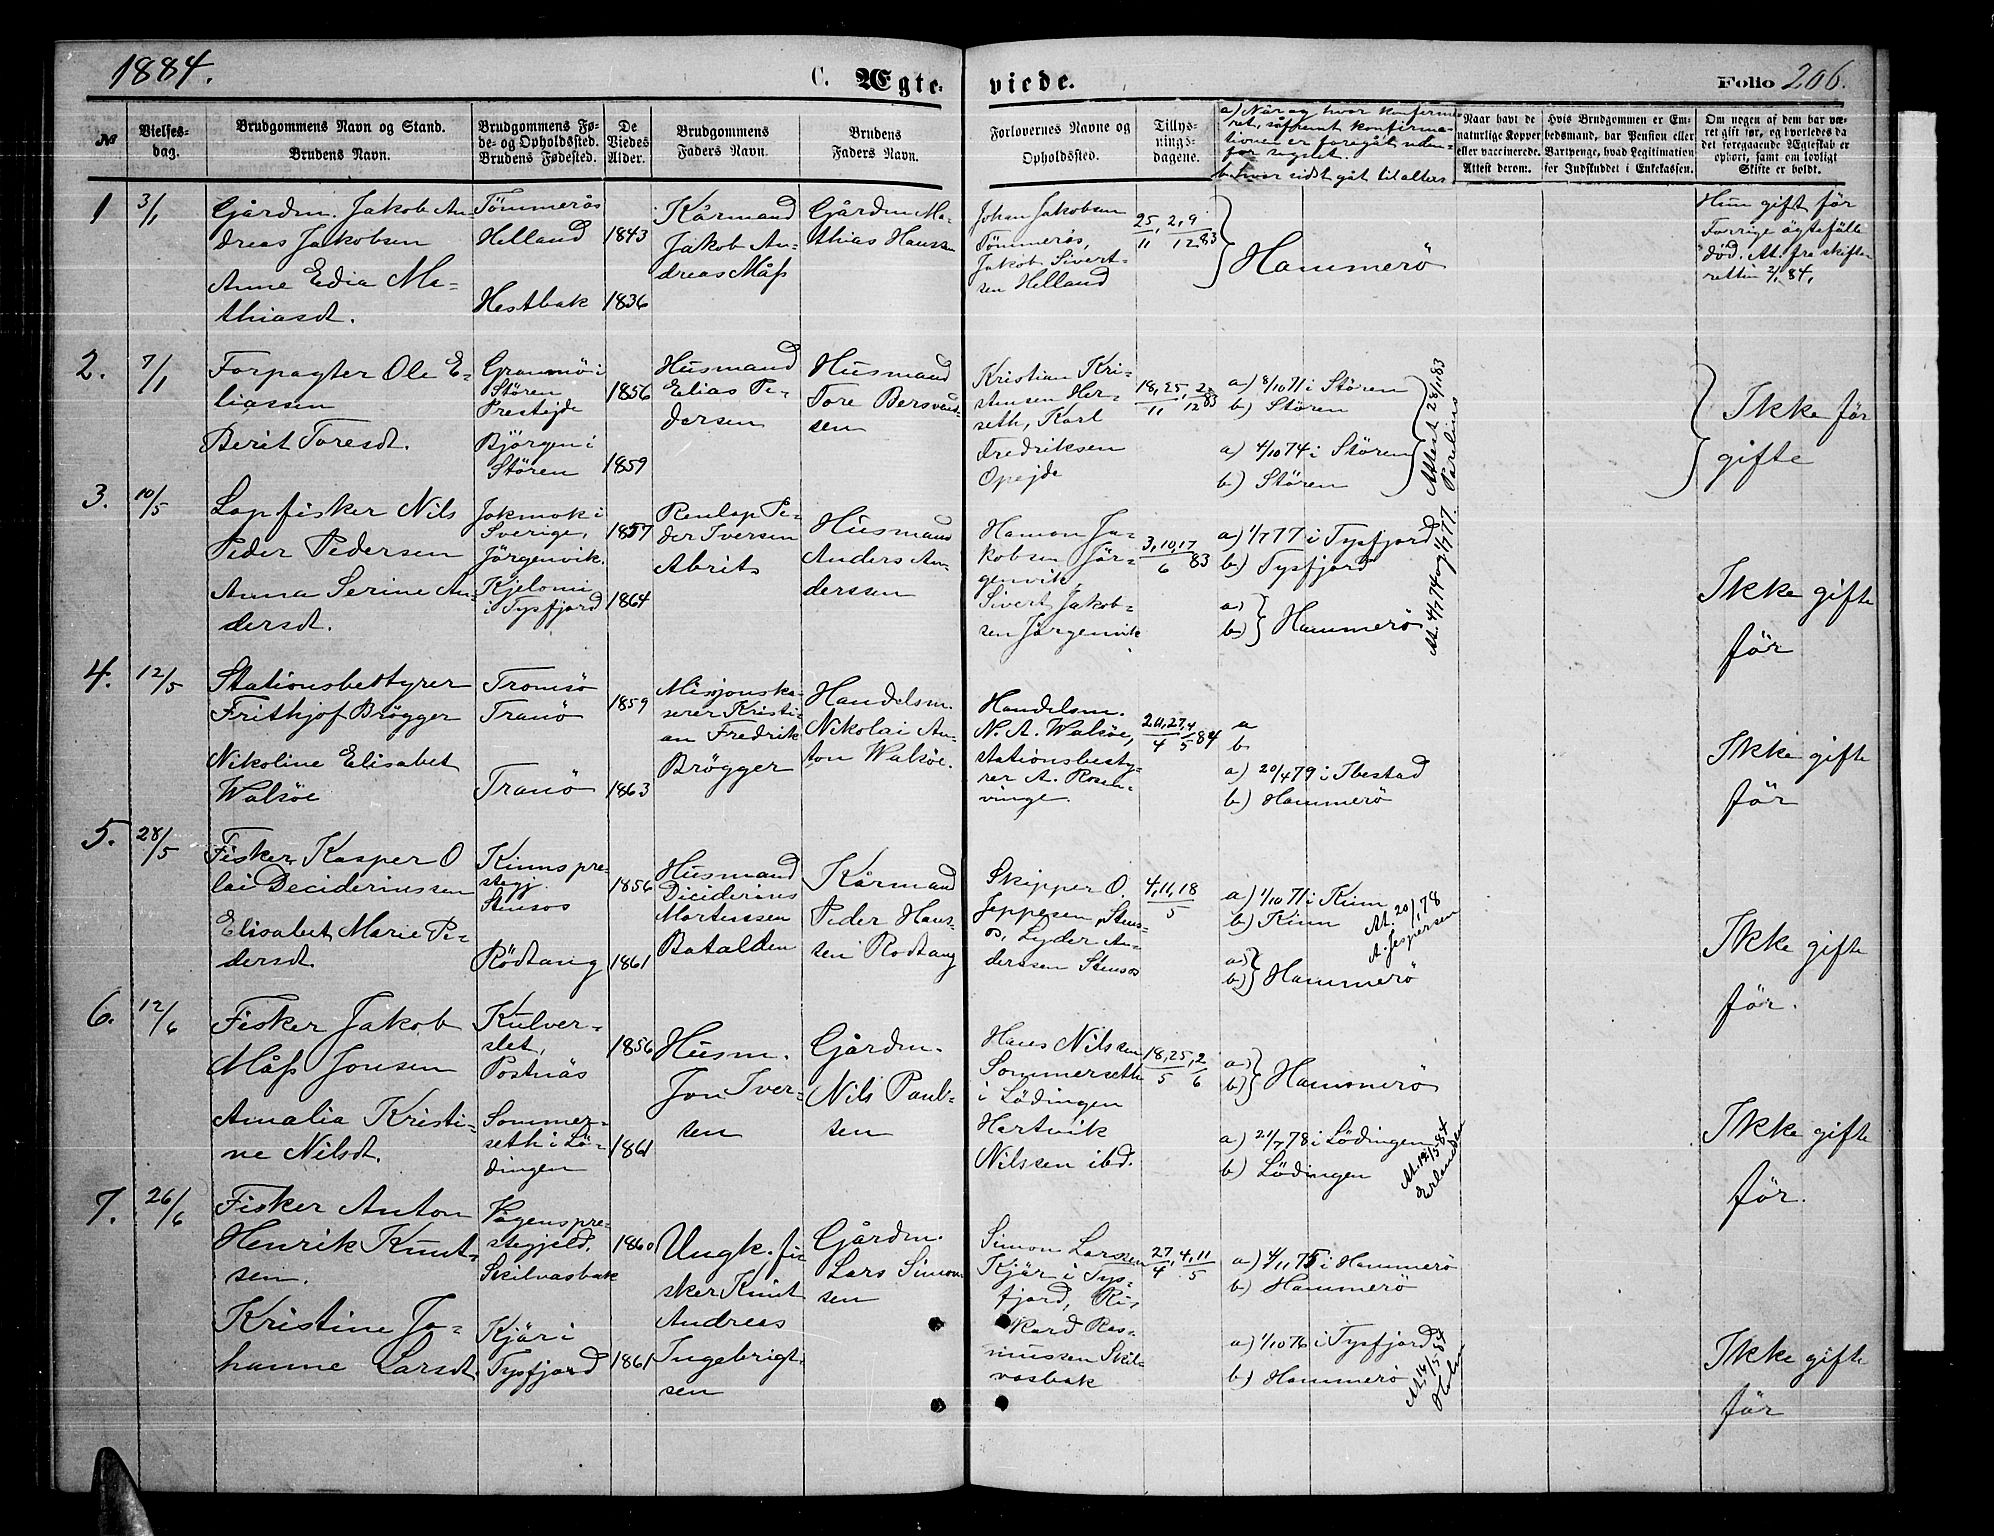 1884.
C. Ægte-
viede.
Folio 206.
№
Vielses-
dag.
Brudgommens Navn og Stand.
Brudens Navn.
Brudgommens Fø-
de- og Opholdssted.
Brudens Fødested.
De
Viedes
Alder.
Brudgommens
Faders Navn.
Brudens
Faders Navn.
Forlovernes Navne og
Opholdssted.
Tillys-
nings-
dagene.
a) Når og hvor konfirme-
ret, såfremt konfirma-
tionen er foregåt uden-
for sognet.
b) hvor sidst gåt til alters
Naar havt de
naturlige Kopper
eller vaccinerede.
Attest derom:
Hvis Brudgommen er Em-
bedsmand, har Pension eller
Vartpenge, hvad Legitimation
for Indskuddet i Enkekassen.
Om nogen af dem har væ-
ret gift før, og hvorledes da
det foregaaende Ægteskab er
ophørt, samt om lovligt
Skifte er holdt.
1
3/1
Gårdm. Jakob An-
dreas Jakobsen
Anne Edia Ma-
thiasdt.
Tömmerås
Helland
Hestbak
1843
1836
Kårmand
Jakob An-
dreas Måss
Gårdm Ma-
thias Hansen
Johan Jakobsen
Tømmerås,
Jakob Sivert-
sen Helland
25/11, 2,9/12 83
Hammerö
Hun gift før
Forrige ägtefälle
död. At. fra skifte-
retten 2/1 84,
2.
7/1
Forpagter Ole E-
liassen
Berit Toresdt.
Granmö i
Stören
Prestejde
Björgen i
Stören
1856
1859
Husmand
Elias Pe-
dersen
Husmand
Tore Bersvend-
sen
Kristian Kri-
stensen Her-
seth, Karl
Fredriksen
Opejde
18,25/11, 2/12 83
a) 8/10 71 i Stören
b) Stören
a) 4/10 74 i Stören
b) Stören
Attest 28/11 83
Ikke før
gifte
3.
10/5
Lapfisker Nils
Peder Pedersen
Anna Serine An-
dersdt.
Jokmok i
Sverige,
Jörgenvik.
Kjelomi
i Tysfjord
1857
1864
Renlap Pe-
der Iversen
Abrits
Husmand
Anders An-
derssen
Hamon Ja-
kobsen Jör-
genvik,
Sivert Jakob-
sen Jörgenvik
3,10,17/6 83
a) 1/7 77 i Tysfjord
b) Tysfjord
a)
b) Hammerö
At. 4/7 74 og 1/7 77.
Ikke gifte
för
4.
12/5
Stationsbestyrer
Frithjof Brögger
Nikoline Elisabet
Walsöe
Tromsö
Tranö
Tranö
1859
1863
Misjonska-
serer Kristi-
an Fredrik
Brögger
Handelsm.
Nikolai An-
ton Walsöe.
Handelsm.
N. A. Walsöe,
stationsbesty-
rer A. Rosen-
vinge.
20,27/4, 4/5 84
a
b
a) 20/4 79 i Ibestad
b) Hammerö
Ikke gifte
för
5.
28/5
Fisker Kasper O
lai Deciderinssen
Elisabet Marie Pe-
dersdt.
Kinns pre-
stegj.
Stensos
Rödtang
1856
1861
Husmand
Diciderins
Martinssen
Batalden
Kårmand
Peder Hans-
sen Rodtang
Skipper O.
Jeppesen, Stens-
os, Lyder An-
derssen Stensos
4,11,18/5
a) 1/10 71 i Kinn
b) Kinn
a)
b) Hammerö
At. 20/1 78
A. Jespersen
Ikke gifte
för.
6.
12/6
Fisker Jakob
Måss Jonsen
Amalia Kristi-
ne Nilsdt.
Kulver-
slet,
Postnäs
Sommer-
seth i Lö-
dingen
1856
1861
Husm.
Jon Iver-
sen
Gårdm.
Nils Paul-
sen
Hans Nilssen
Sommerseth
i Lödingen
Hartvik
Nilssen ibd.
18,25/5, 2/6
a)
b) Hammerö
a) 21/7 78 i Lödingen
b) Lödingen
At. 12/5 84
Erlandsen
Ikke gifte
för.
7.
26/6
Fisker Anton
Henrik Knut-
sen.
Kristine Jo-
hanne Larsdt.
Vågens pre-
stegjeld.
Skilvasbak
Kjär i
Tysfjord
1860
1861
Ungk. fi-
sker Knut
Andreas
Ingebrigt-
sen
Gårdm.
Lars Simon-
sen
Simon Larssen
Kjär i Tys-
fjord, Ri-
kard Ras-
mussen Skil-
vasbak
27/4, 4,11/5
a) 4/11 75 i Hammerö
b) Hammerö
a) 1/10 76 i Tysfjord
b) Hammerö
At. 14/5 84
Holm
Ikke gifte
för